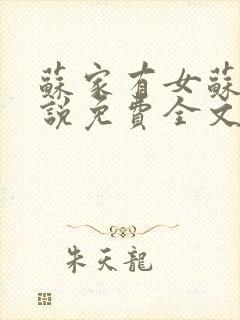 蘇家有女蘇
說免費全文
朱天龍